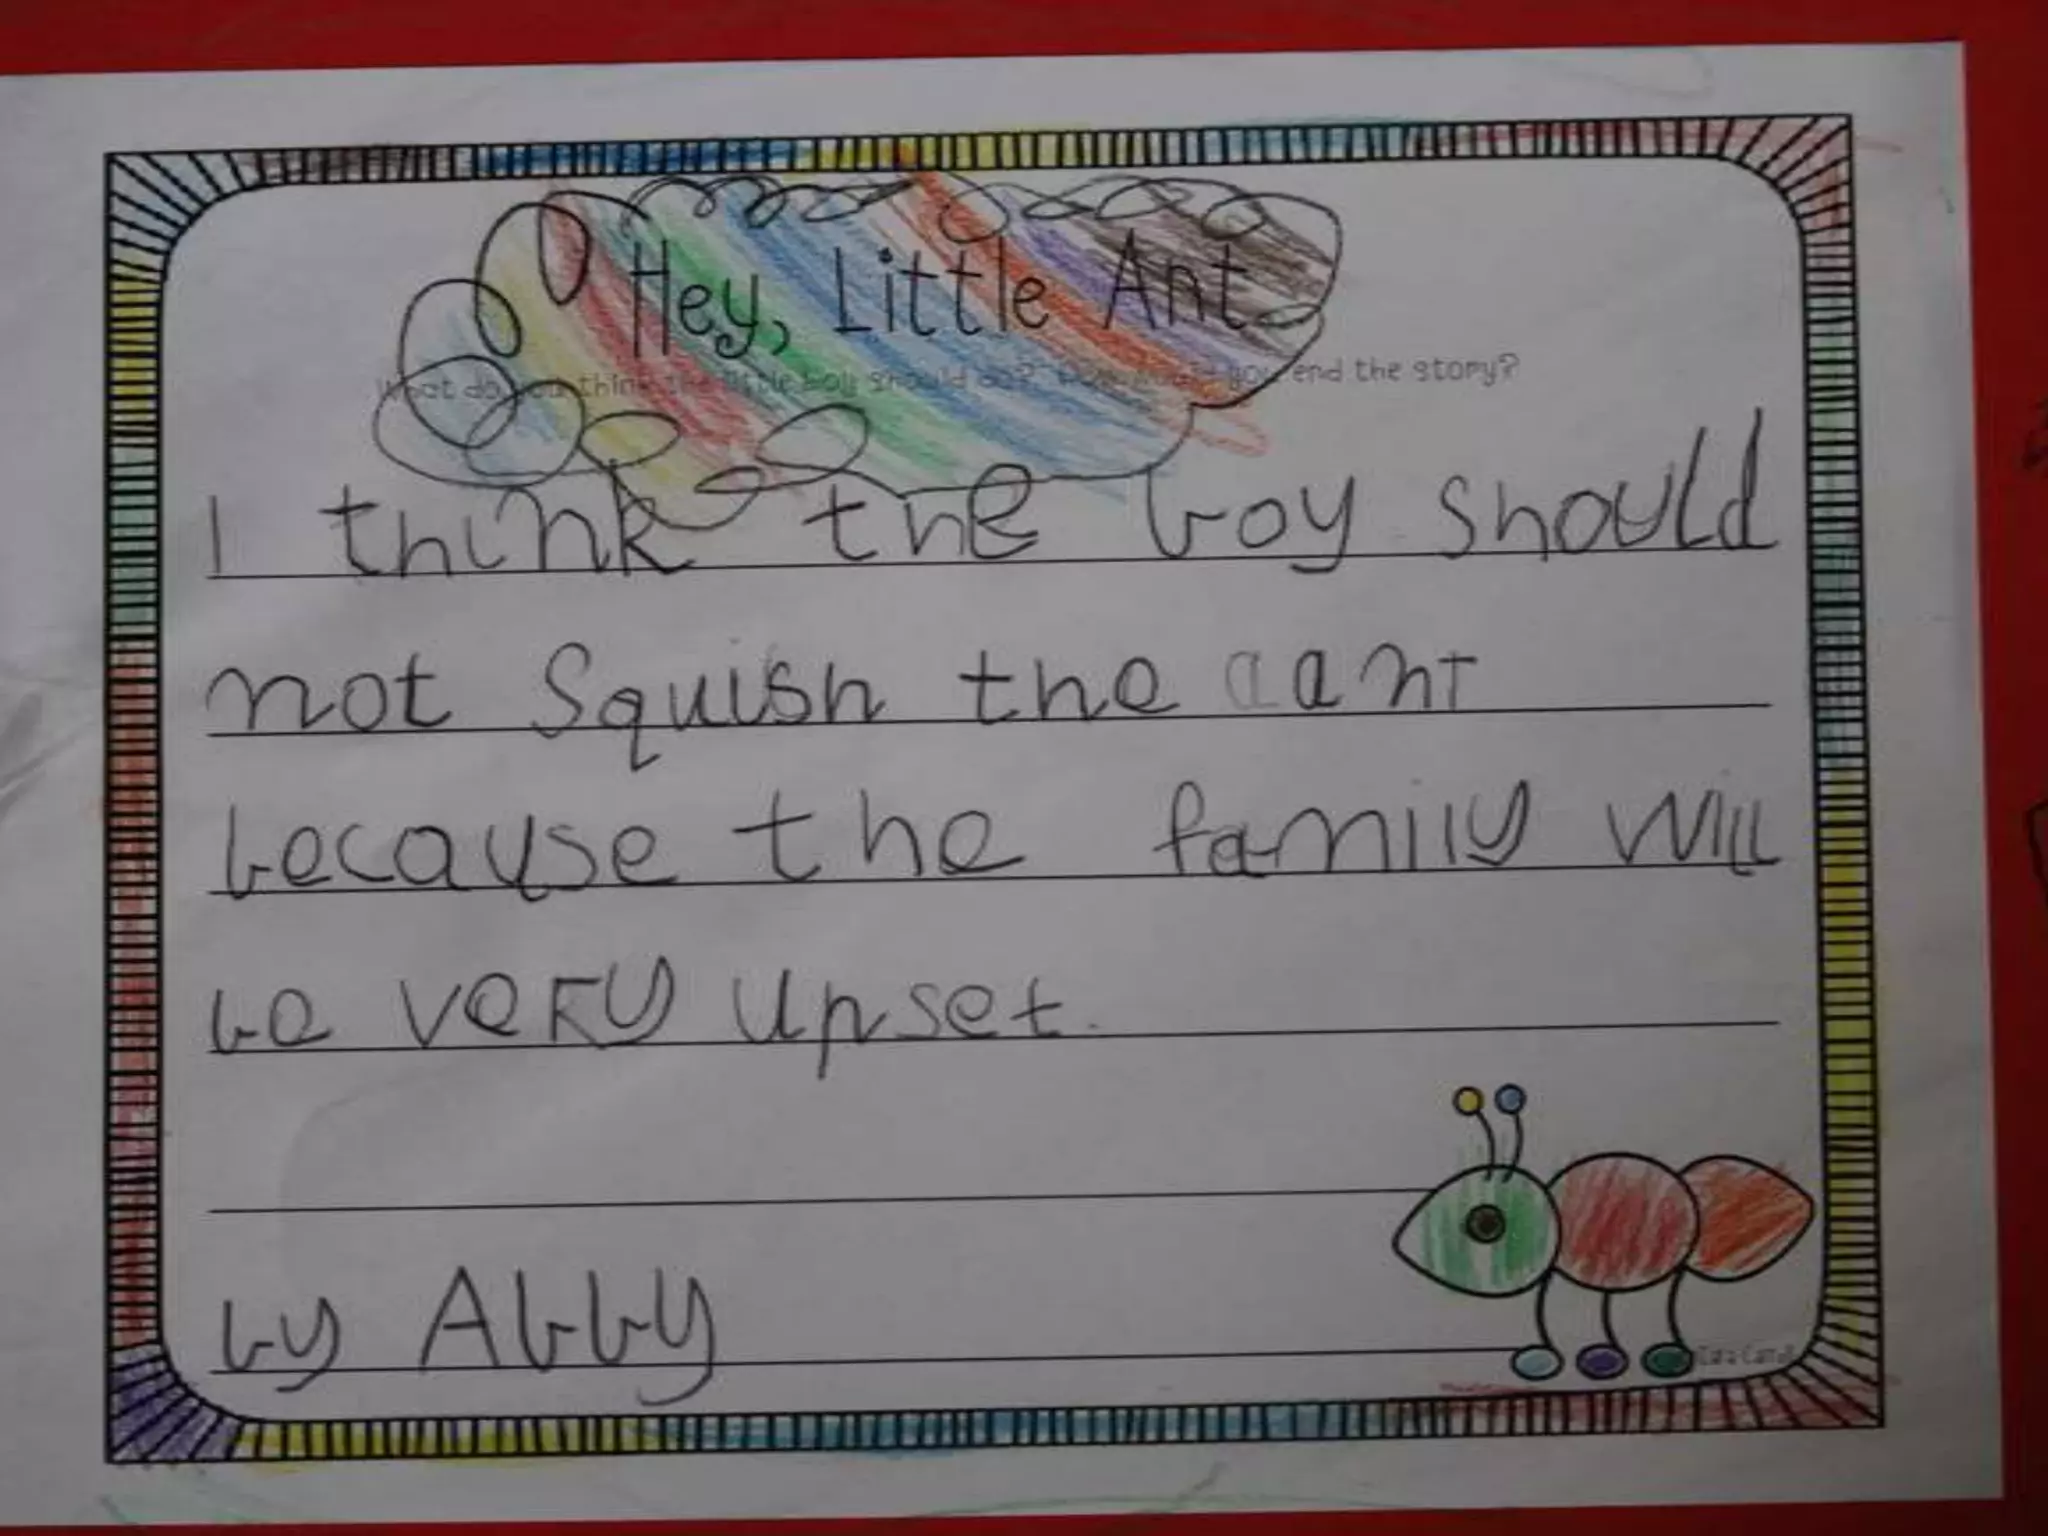 Hey, Little Ant
What do you think the little boy should do? How would you end the story?
I think the boy should
not squish the a ant
because the family will
be very upset.
by Abby